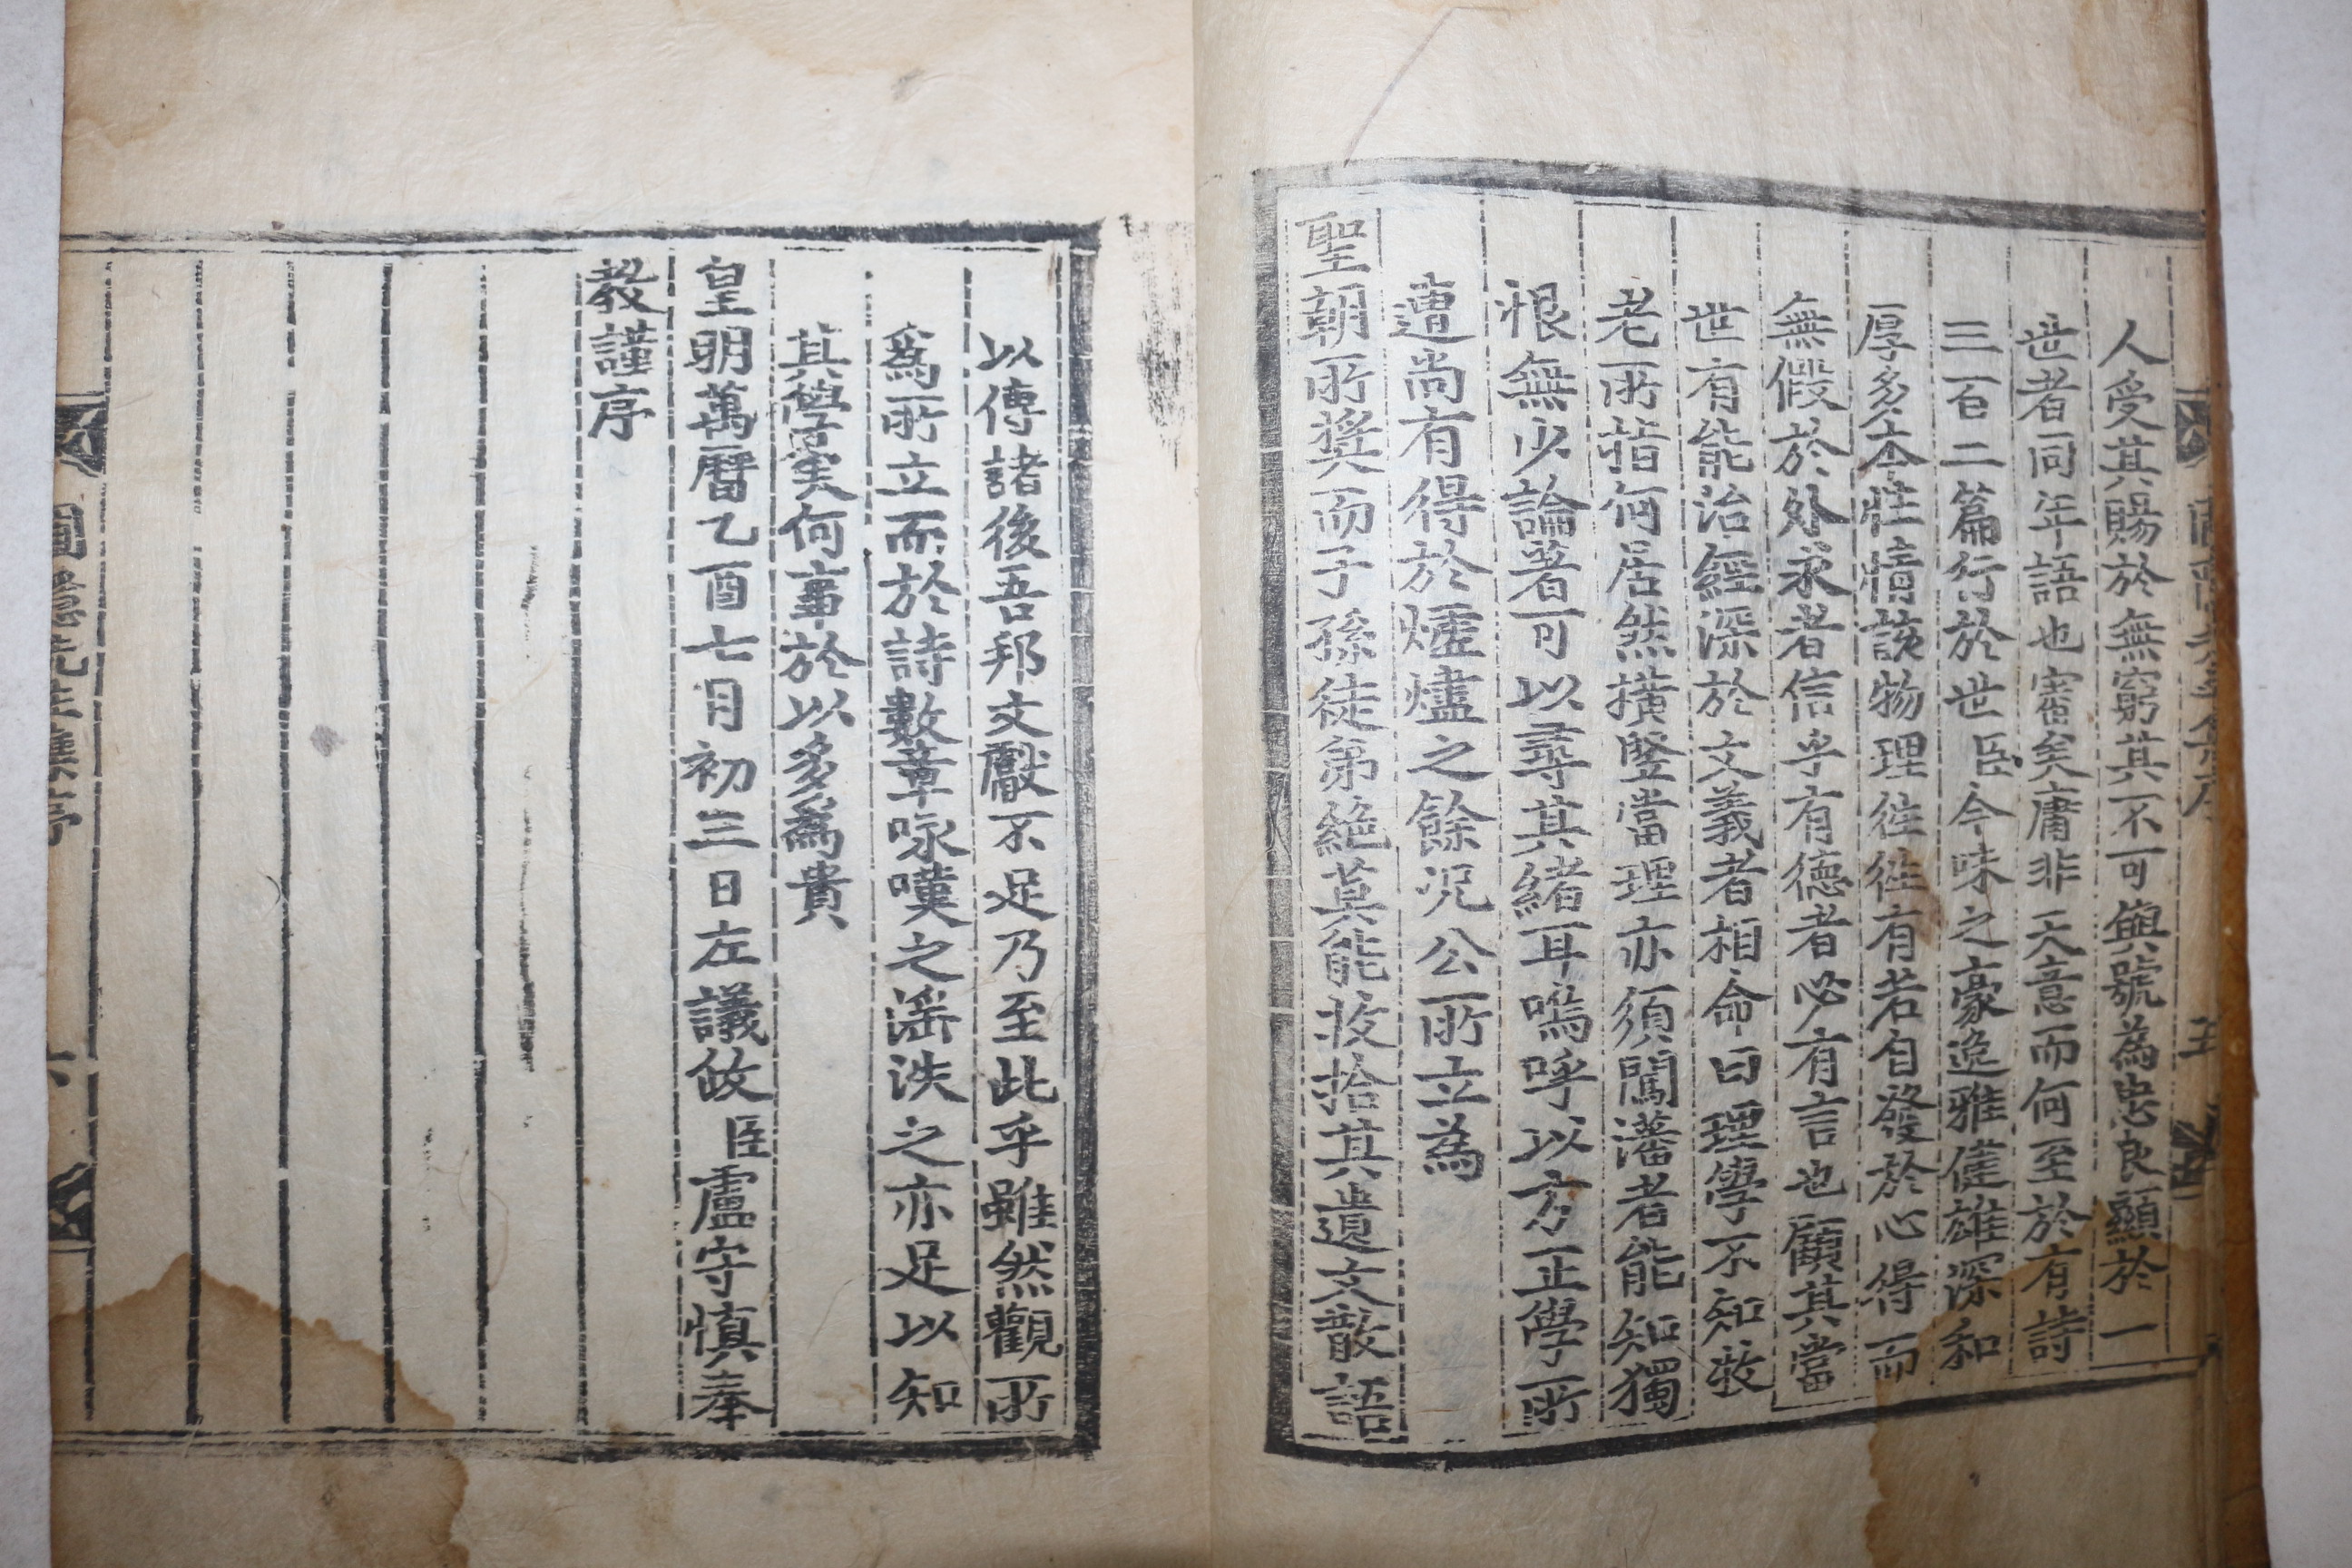 人受其賜於無窮其不可與號為忠良顯於一
世者同年語也審矣庸非天意而何至於有詩
三百二篇行於世臣今味之豪逸雅健雄深和
厚多本性情該物理往往有若自發於心得而
無假於外求者信乎有德者必有言也顧其當
世有能治經深於文義者相命曰理學不知牧
老所指何居然橫竪當理亦須闖藩者能知獨
恨無少論著可以尋其緖耳嗚呼以方正學所
遭尚有得於爐燼之餘況公所立為
聖朝所奬而子孫徒弟絶莫能收拾其遺文散語
以傳諸後吾邦文獻不足乃至此乎雖然觀所
爲所立而於詩數章咏嘆之滛泆之亦足以知
其學宲何事於以多爲貴
皇明萬曆乙酉七月初三日左議政臣盧守愼奉
敎謹序
圃隱先生集序
六
五